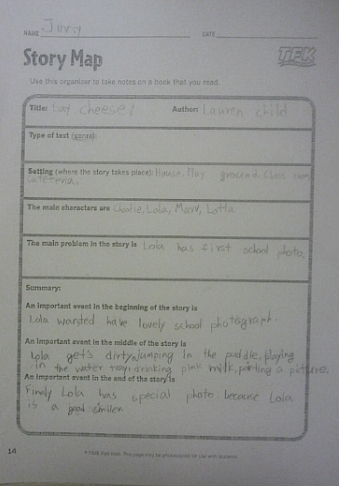 NAME Jury DATE
Story Map
TFK
Use this organizer to take notes on a book that you read.
Title: Say cheese! Author: Lauren child
Type of text (genre):
Setting (where the story takes place): House, Play ground Class room
Cafeteria,
The main characters are Charlie, Lola, Marv, Lotta
The main problem in the story is Lola has first school photo.
Summary:
An important event in the beginning of the story is
Lola wanted have lovely school photograph.
An important event in the middle of the story is
Lola gets dirty, jumping in the puddle, playing
in the water tray, drinking pink milk, painting a picture.
An important event in the end of the story is
Finaly Lola has special photo because Lola
is a good
14